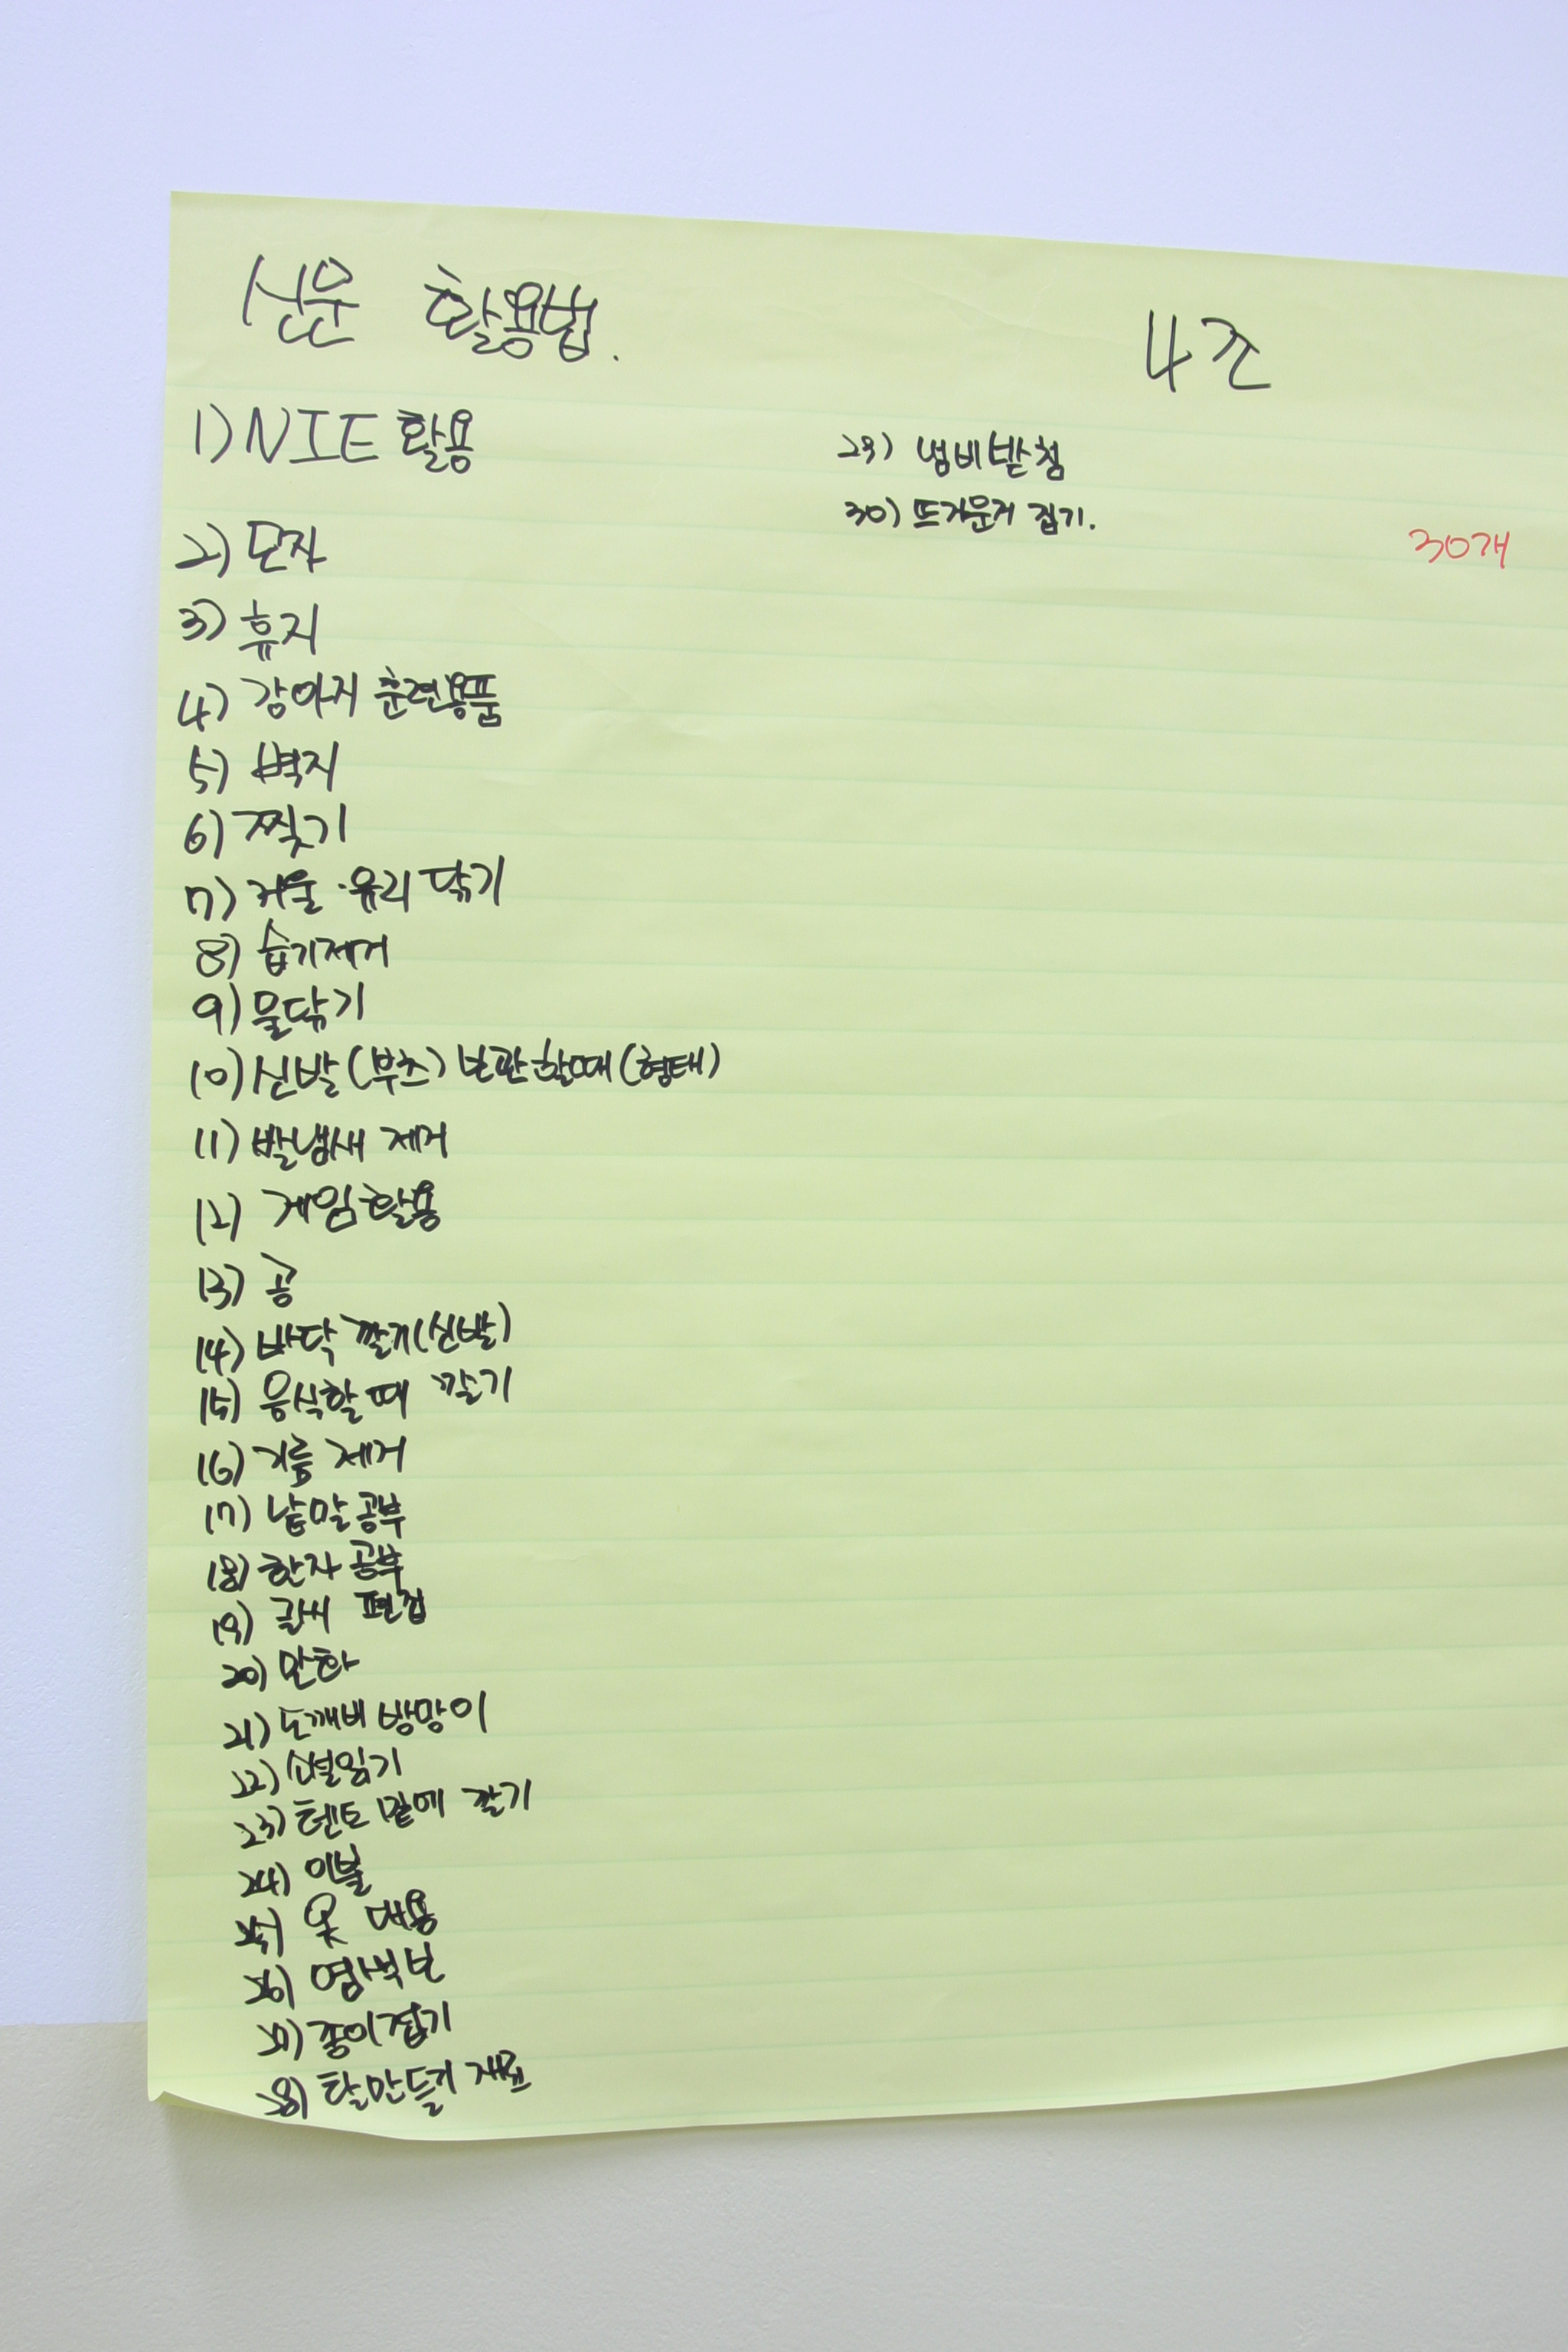 신문 활용법.
4조
1) NIE 활용
2) 모자
3) 휴지
4) 강아지 훈련용품
5) 벽지
6) 찢기
7) 거울·유리 닦기
8) 습기제거
9) 물닦기
10) 신발(부츠) 보관할때(형태)
11) 발냄새 제거
12) 게임활용
13) 공
14) 바닥 깔개(신발)
15) 음식할 때 깔기
16) 기름 제거
17) 낱말공부
18) 한자 공부
19) 글씨 편집
20) 만화
21) 도깨비 방망이
22) 소설읽기
23) 텐트 밑에 깔기
24) 이불
25) 옷 대용
26)
27) 종이접기
28) 탈만들기 재료
29) 냄비받침
30) 뜨거운거 집기.
30개